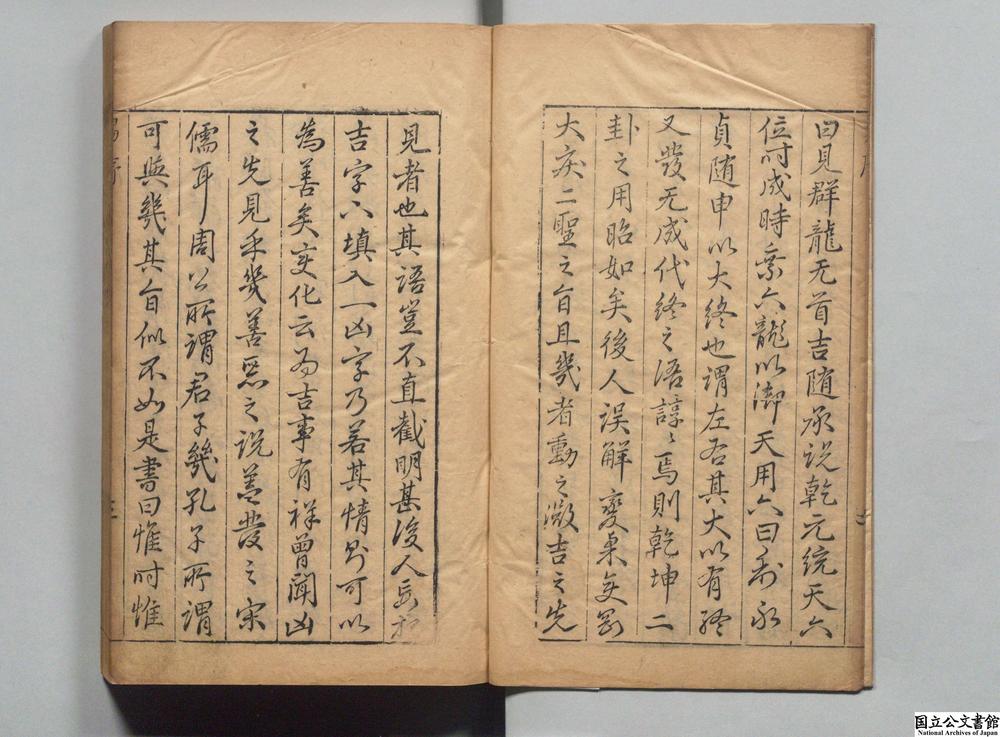 曰見群龍无首吉随承说乾元统天六
位时成時乘六龍以御天用六曰利永
貞随申以大终也谓左右其大以有终
又發无成代终之语諄〻焉則乾坤二
卦之用昭如矣後人误解變東矣
大戾二聖之旨且幾者動之微吉之先
見者也其语豈不直截明甚後人妄於
吉字下填入一凶字乃若其情則可以
為善矣变化云为吉事有祥曾闻凶
之先見乎幾善惡之说盖發之宋
儒耳周公所谓君子幾孔子所謂
可與幾其旨似不如是書曰惟时惟
国立公文書館
National Archives of Japan